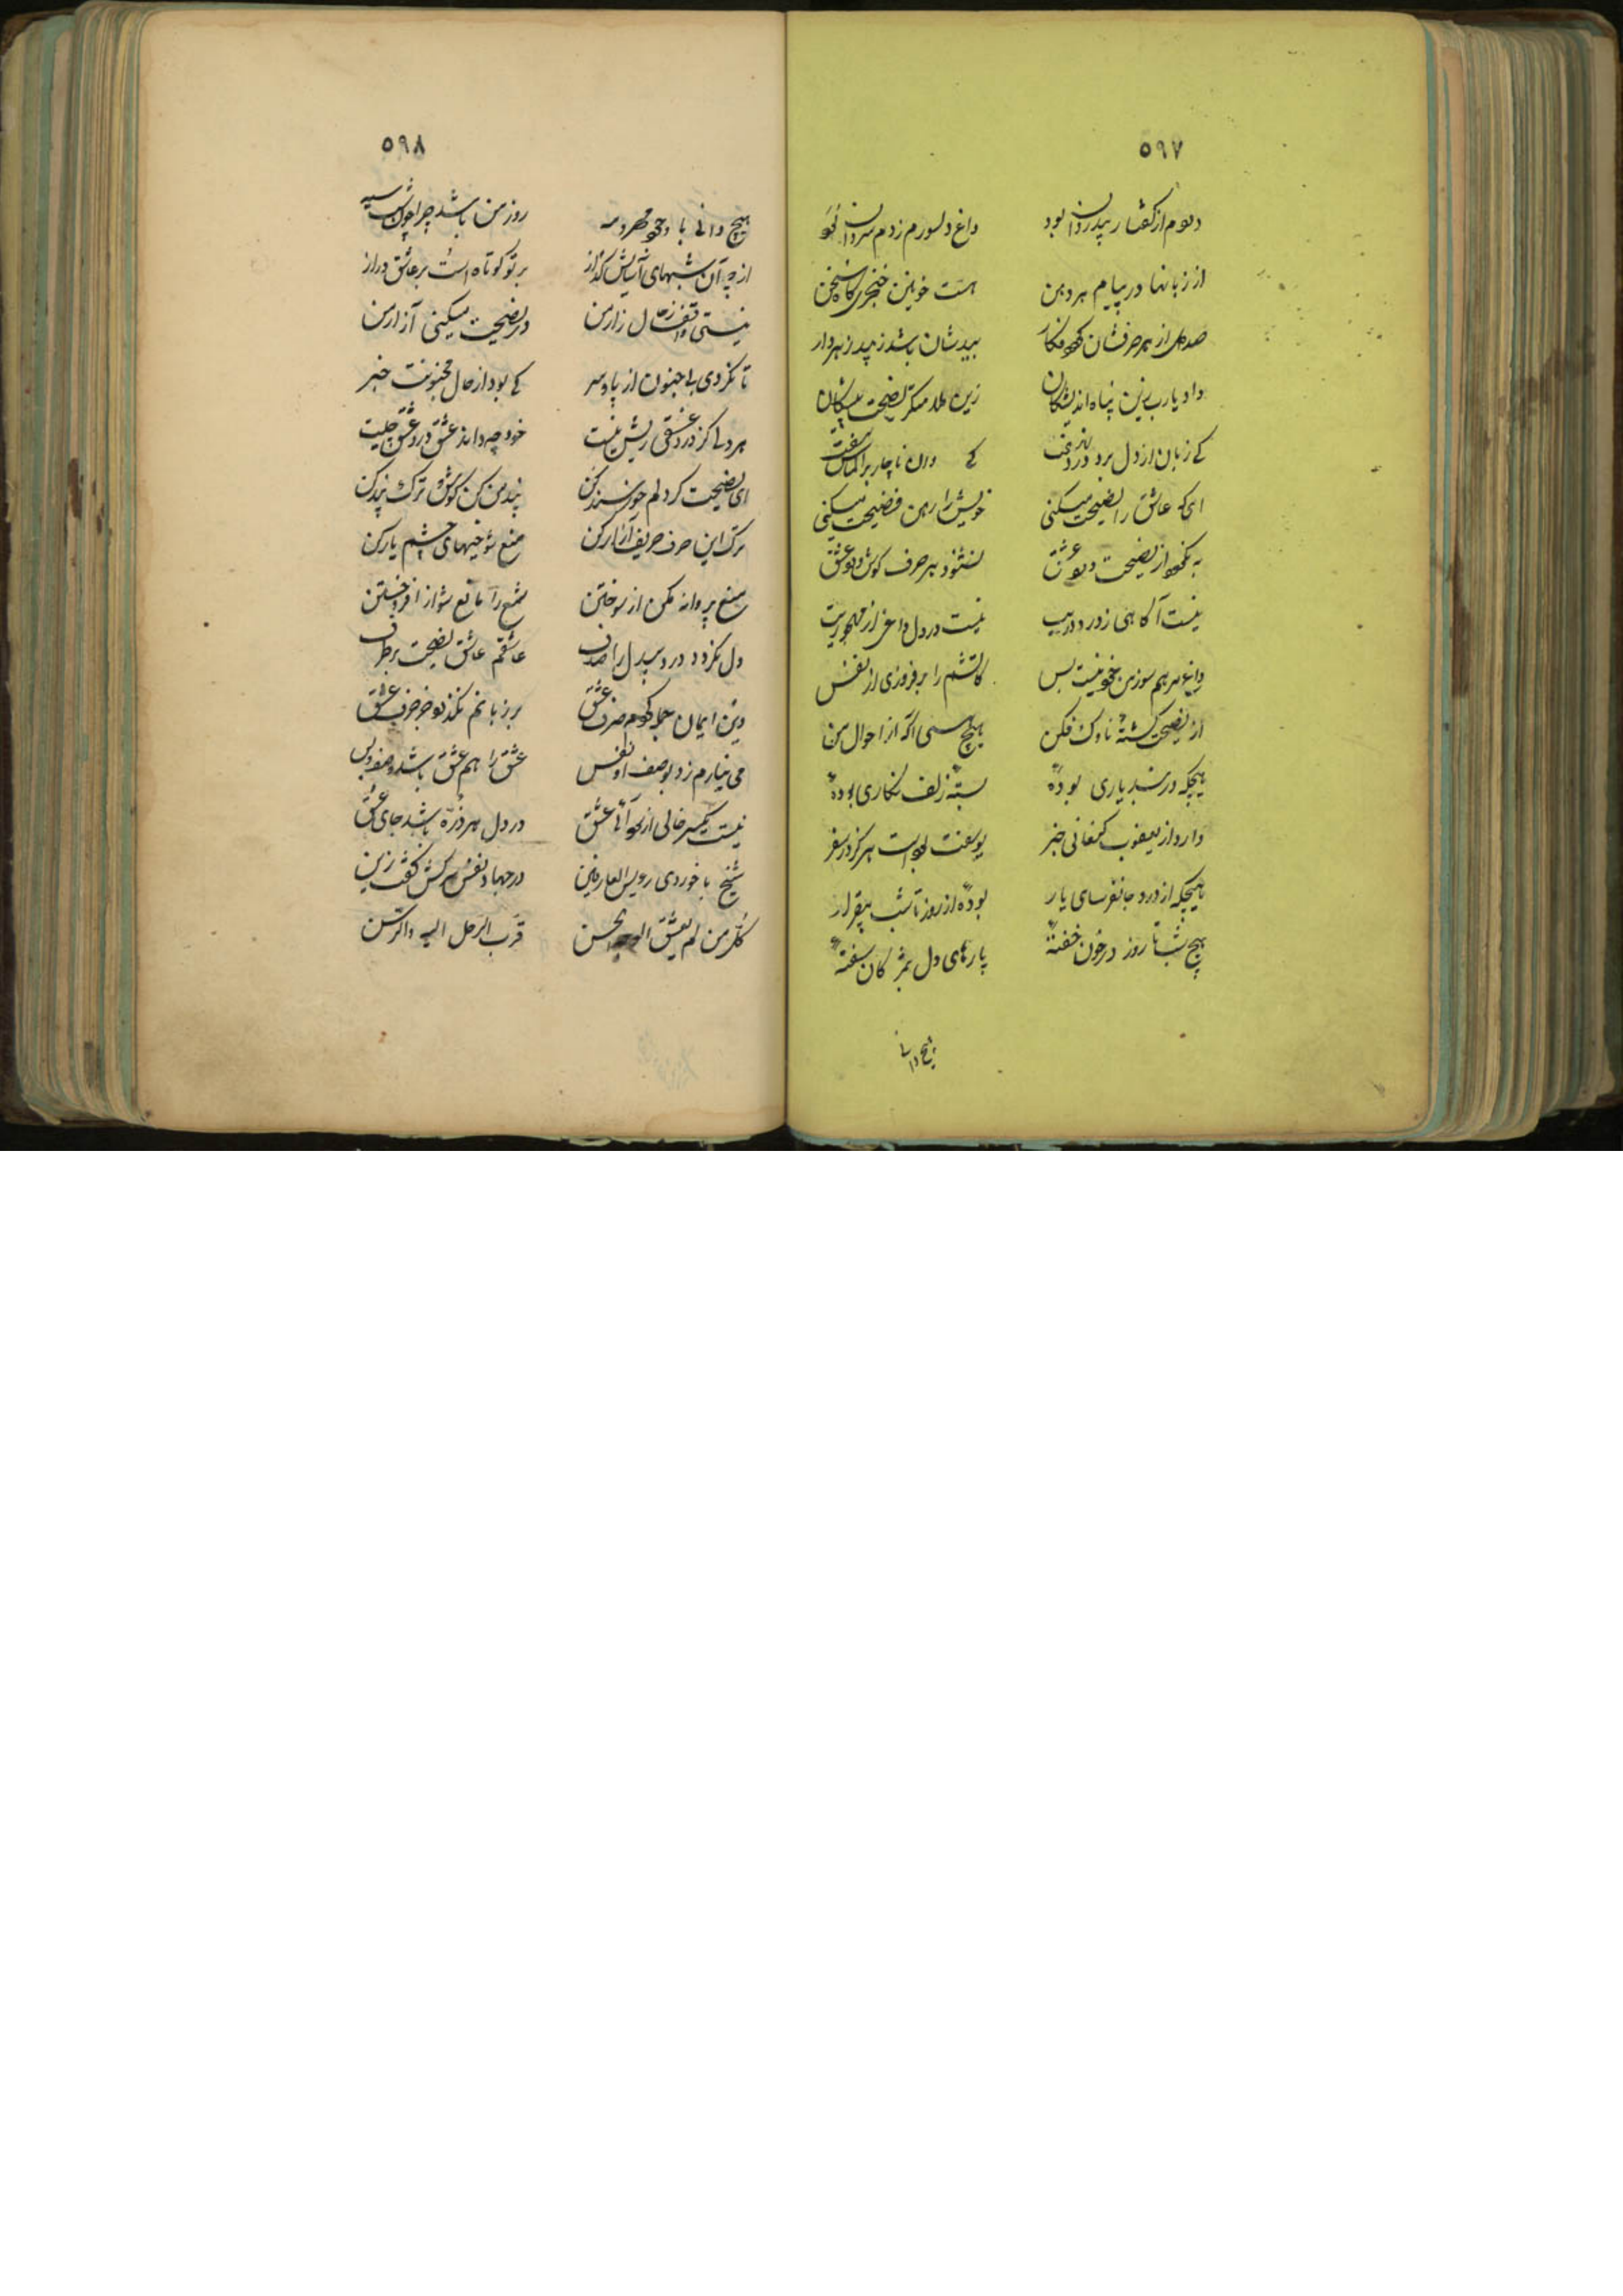 ۵۹۷
دلم از گفتار بیدردان بود داغ دلسوزم ز دم سردان بود
از زبانها در پیام هر دهن هست خونین خنجری کاه سخن
صد دل از هر حرفشان فکار بیدشان باشد ز پند زهردار
داد یارب زین پناه اندیشکان زین نصیحت پیشکان
کے زبان از دل برد درد نهفت کے وان ناچار بر الماس سفت
ای که عاشق را نصیحت میکنی خویش را رهن فضیحت میکنی
به نکردد از نصیحت درد عشق نشنود هر حرف گوش مرد عشق
نیست آگاهی ز درد دوریت نیست در دل داغی از مهجوریت
داغ مرهم سوز من خود نیست بس کاتشم را برفروزی از نفس
از نصیحت گشتهٔ ناوک فکن هیچ هستی آگه از احوال من
هیچکه در بند یاری بودهٔ بستهٔ زلف نگاری بودهٔ
دارد از یعقوب کنعانی خبر یوسفت بوده است هرگز در سفر
هیچکه از درد جانفرسای یار بودهٔ از روز تا شب بیقرار
هیچ شب تا روز در خون خفتهٔ پارهای دل بمژگان سفتهٔ
هیچ دانی
۵۹۸
هیچ دانی با وجود مهر و مه روز من باشد چرا چون شب سیه
از چه آن شبهای آسایش گداز بر تو کوتاه است بر عاشق دراز
نیستی واقف ز حال زار من در نصیحت میکنی آزار من
تا نکردی بے جنون از پا و سر کے بود از حال مجنونت خبر
هر دلے کز درد عشقی ریش نیست خود چه داند عشق و درد عشق چیست
ای نصیحت گر دلم خورسند کن پند من کن گوش و ترک پند کن
ترک این حرف حریف آزار کن منع شوخیهای چشم یار کن
منع پروانه مکن از سوختن شمع را مانع شو از افروختن
دل نکردد درد بیدل را صدف عاشقم عاشق نصیحت برطرف
دین و ایمان جمله کردم صرف عشق بر زبانم نگذرد جز حرف عشق
می نیارم زد بوصف او نفس عشق را هم عشق باشد وصف و بس
نیست یکسر خالی از سودای عشق در دل هر ذره باشد جای عشق
شیخ باخوردی رویس العارفین در جهاد نفس سرکش گفت زین
کل من لم یعشق الوجه الحسن قرب الرحل الیه والرسن